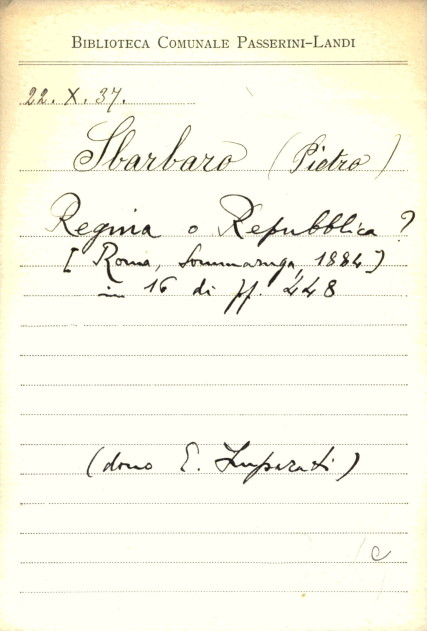 BIBLIOTECA COMUNALE PASSERINI-LANDI
22. X. 37.
Sbarbaro (Pietro)
Regina o Repubblica?
[Roma, Sommaruga, 1884]
in 16 di pp. 448
(dono E. Imparati)
c